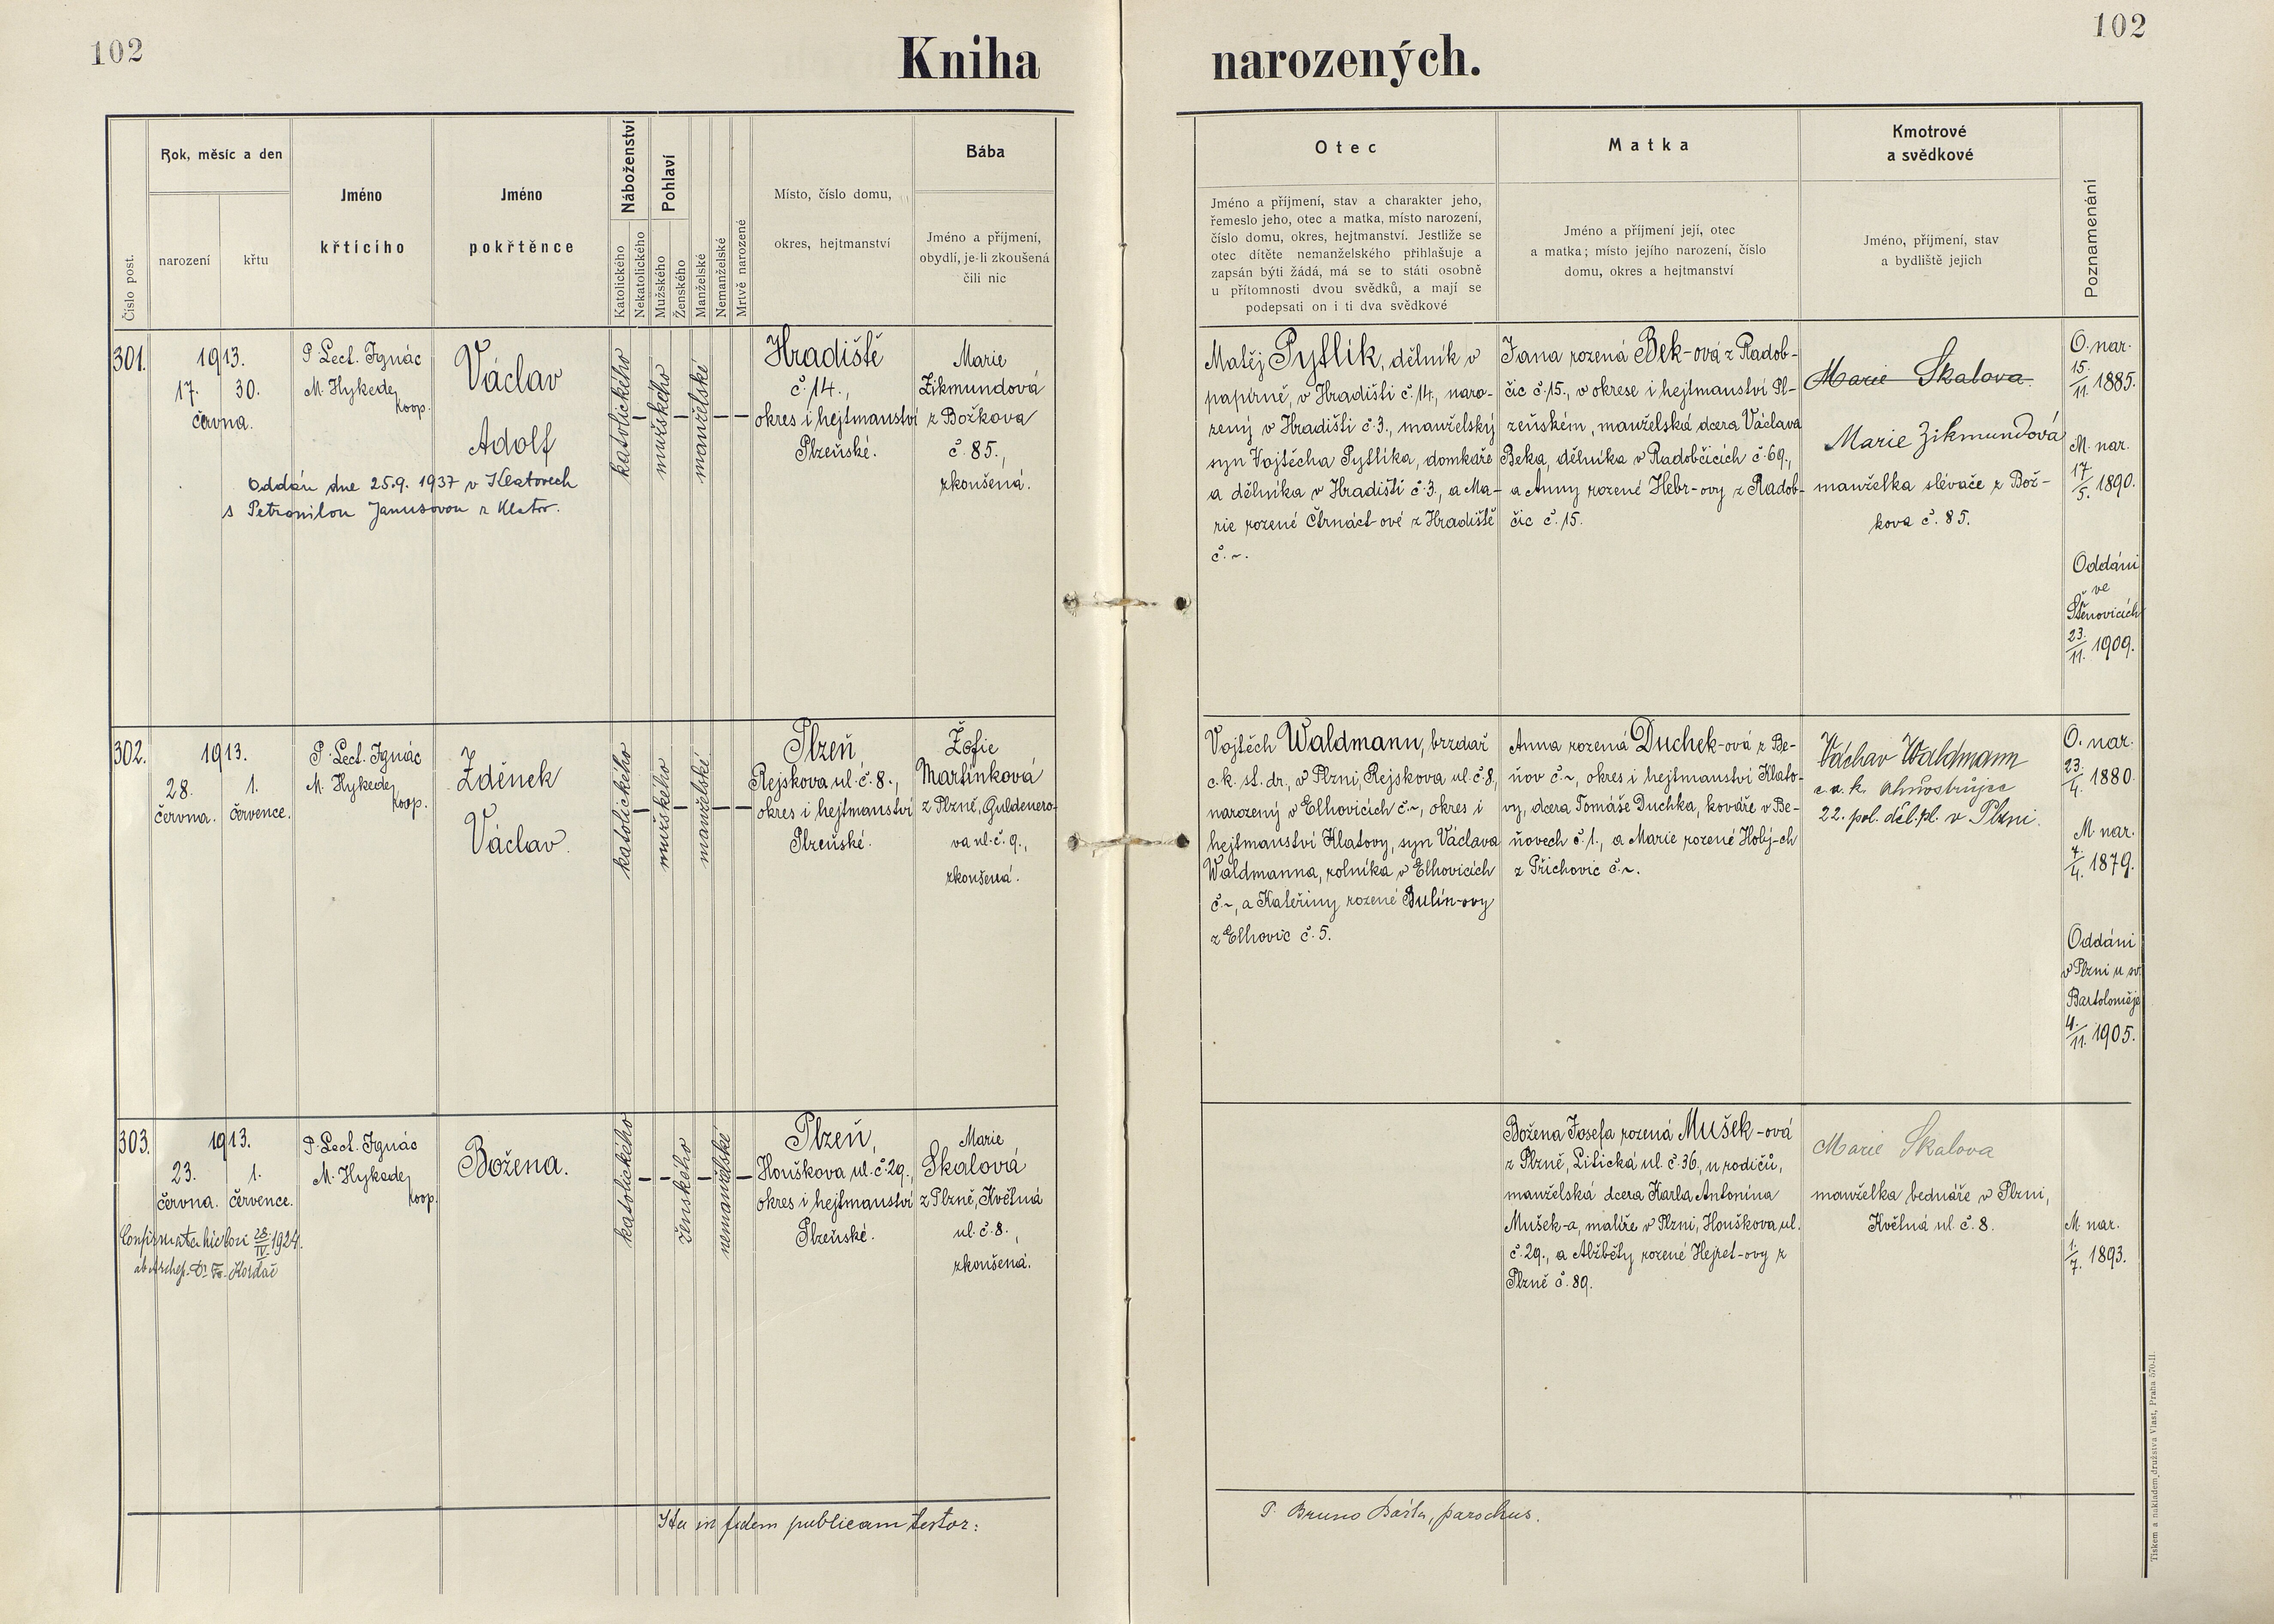 102
102
Kniha narozených.
Číslo post.
Rok, měsíc a den
narození
křtu
Jméno
křtícího
Jméno
pokřtěnce
Náboženství
Katolického
Nekatolického
Pohlaví
Mužského
Ženského
Manželské
Nemanželské
Mrtvě narozené
Místo, číslo domu,
okres, hejtmanství
Bába
Jméno a příjmení,
obydlí, je-li zkoušená
čili nic
Otec
Jméno a příjmení, stav a charakter jeho,
řemeslo jeho, otec a matka, místo narození,
číslo domu, okres, hejtmanství. Jestliže se
otec dítěte nemanželského přihlašuje a
zapsán býti žádá, má se to státi osobně
u přítomnosti dvou svědků, a mají se
podepsati on i ti dva svědkové
Matka
Jméno a příjmení její, otec
a matka; místo jejího narození, číslo
domu, okres a hejtmanství
Kmotrové
a svědkové
Jméno, příjmení, stav
a bydliště jejich
Poznamenání
301.
1913.
17. 30.
června.
P. Lect. Ignác
M. Hykede,
koop.
Václav
Adolf
Oddán dne 25.9. 1937 v Klatovech
s Petronilou Janusovou z Klatov.
katolického
-
mužského
-
manželské
-
-
Hradiště
č. 14.,
okres i hejtmanství
Plzeňské.
Marie
Zikmundová
z Božkova
č. 85.,
zkoušená.
Matěj Pytlík, dělník v
papírně, v Hradišti č. 14., naro-
zený v Hradišti č. 3., manželský
syn Vojtěcha Pytlíka, domkáře
a dělníka v Hradišti č. 3., a Ma-
rie rozené Čtrnáct-ové z Hradiště
č. ~.
Jana rozená Bek-ová z Radob-
čic č. 15., v okrese i hejtmanství Pl-
zeňském, manželská dcera Václava
Beka, dělníka v Radobčicích č. 69.,
a Anny rozené Hebr-ovy z Radob-
čic č. 15.
Marie Skalova.
Marie Zikmundová
manželka slévače z Bož-
kova č. 85.
O. nar.
15./11. 1885.
M. nar.
17/5. 1890.
Oddáni
ve
Štěnovicích
23./11. 1909.
302.
1913.
28. 1.
června. července.
P. Lect. Ignác
M. Hykede,
koop.
Zdeněk
Václav.
katolického
-
mužského
-
manželské
-
-
Plzeň,
Rejskova ul. č. 8.,
okres i hejtmanství
Plzeňské.
Žofie
Martínková
z Plzně, Guldenero-
va ul. č. 9.,
zkoušená.
Vojtěch Waldmann, brzdař
c. k. st. dr., v Plzni, Rejskova ul. č. 8,
narozený v Elhovicích č. ~, okres i
hejtmanství Klatovy, syn Václava
Waldmanna, rolníka v Elhovicích
č. ~, a Kateřiny rozené Bulín-ovy
z Elhovic č. 5.
Anna rozená Duchek-ová z Be-
ňov č. ~, okres i hejtmanství Klato-
vy, dcera Tomáše Duchka, kováře v Be-
ňovech č. 1., a Marie rozené Holý-ch
z Přichovic č. ~.
Václav Waldmann
c. a. k. ohňostrůjce
22. pol. děl. pl. v Plzni.
O. nar.
23./4. 1880.
M. nar.
7./4. 1879.
Oddáni
v Plzni u sv.
Bartoloměje
4./11. 1905.
303.
1913.
23. 1.
června. července.
P. Lect. Ignác
M. Hykede,
koop.
Božena.
Confirmata hic loci 28./IV. 1924.
ab Archep. Dr. Fr. Kordač
katolického
-
-
ženského
-
nemanželské
-
Plzeň,
Houškova ul. č. 29.,
okres i hejtmanství
Plzeňské.
Marie
Skalová
z Plzně, Květná
ul. č. 8.,
zkoušená.
Božena Josefa rozená Mušek-ová
z Plzně, Litická ul. č. 36., u rodičů,
manželská dcera Karla Antonína
Mušek-a, malíře v Plzni, Houškova ul.
č. 29., a Alžběty rozené Hejret-ovy z
Plzně č. 89.
Marie Skalova
manželka bednáře v Plzni,
Květná ul. č. 8.
M. nar.
1./7. 1893.
Ita in fidem publicam testor:
P. Bruno Bašta, parochus.
Tiskem a nákladem družstva Vlast, Praha 570-II.